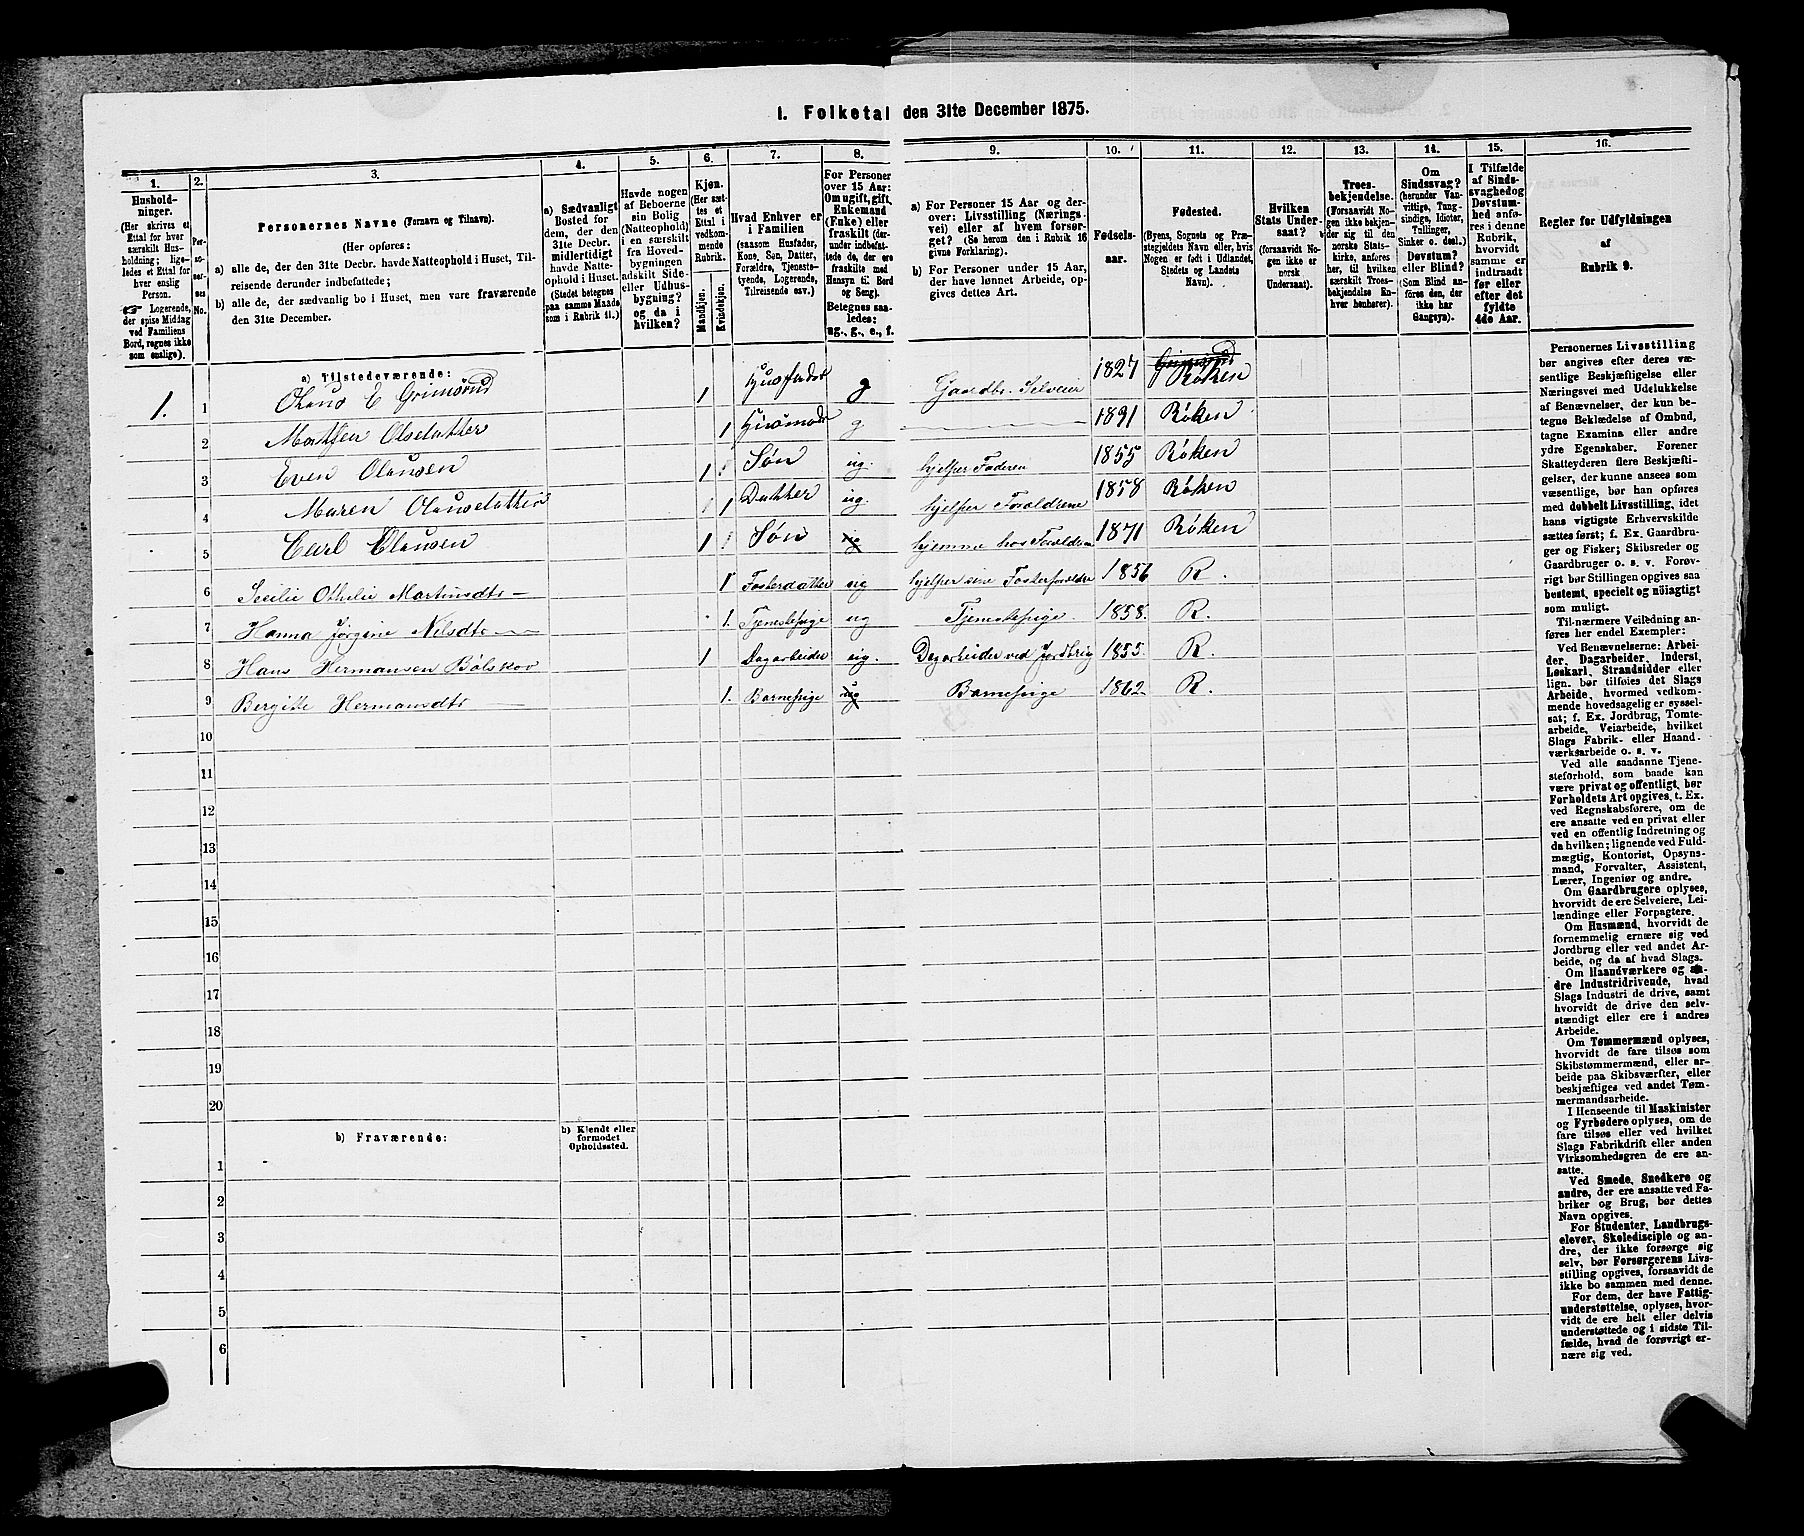 1. Folketal den 31te December 1875.
1.
Hushold-
ninger.
(Her skrives et
Ettal for hver
særskilt Hus-
holdning; lige-
ledes et Ettal for
hver enslig
Person.
Logerende,
der spise Middag
ved Familiens
Bord, regnes ikke
som enslige).
2.
Per-
soner-
nes
No.
3.
Personernes Navne (Fornavn og Tilnavn).
(Her opføres:
a) alle de, der den 31te Decbr. havde Natteophold i Huset, Til-
reisende derunder indbefattede;
b) alle de, der sædvanlig bo i Huset, men vare fraværende
den 31te December.
4.
a) Sædvanligt
Bosted for
dem, der den
31te Decbr.
midlertidigt
havde Natte-
ophold i Huset.
(Stedet betegnes
paa samme Maade
som i Rubrik 11.)
5.
Havde nogen
af Beboerne
sin Bolig
(Natteophold)
i en særskilt
fra Hoved-
bygningen
adskilt Side-
eller Udhus-
bygning?
og da i
hvilken?
6.
Kjøn.
(Her sæt-
tes et
Ettal i
vedkom-
mende
Rubrik.
Mandkjøn.
Kvindekjøn.
7.
Hvad Enhver er
i Familien
(saasom Husfader,
Kone, Søn, Datter,
Forældre, Tjeneste-
tyende, Logerende,
Tilreisende osv.)
8.
For Personer
over 15 Aar:
Om ugift, gift,
Enkemand
(Enke) eller
fraskilt (der-
under indbefat-
tede de, der
ere fraskilte med
Hensyn til Bord
og Seng).
Betegnes saa-
ledes:
ug., g., e., f.
9.
a) For Personer 15 Aar og der-
over: Livsstilling (Nærings-
vei) eller af hvem forsør-
get? (Se herom den i Rubrik 16
givne Forklaring).
b) For Personer under 15 Aar,
der have lønnet Arbeide, op-
gives dettes Art.
10.
Fødsels-
aar.
11.
Fødested.
(Byens, Sognets og Præ-
stegjeldets Navn eller, hvis
Nogen er født i Udlandet,
Stedets og Landets
Navn).
12.
Hvilken
Stats Under-
saat?
(forsaavidt No-
gen ikke er
norsk
Undersaat).
13.
Troes-
bekjendelse.
(Forsaavidt No-
gen ikke bekjen-
der sig til den
norske Stats-
kirke, anføres
her, til hvilken
særskilt Troes-
bekjendelse En-
hver henhører).
14.
Om
Sindssvag?
(herunder Van-
vittige, Tung-
sindige, Idioter,
Tullinger,
Sinker o. desl.)
Døvstum?
eller Blind?
(Som Blind an-
føres den, der
ikke har
Gangsyn).
15.
I Tilfælde
af Sinds-
svaghed og
Døvstum-
hed anfø-
res i denne
Rubrik,
hvorvidt
samme er
indtraadt
før eller
efter det
fyldte
4de Aar.
16.
Regler for Udfyldningen
af
Rubrik 9.
a) Tilstedeværende:
1. 1 Olaus E Grimsrud 1 Husfader g Gaardbr. Selveier 1827 Grimsrud Røken
2 Mathea Olsdatter 1 Husmoder g. 1831 Røken
3 Even Olausen 1 Søn ug. hjelper Faderen 1855 Røken
4 Maren Olausdatter 1 Datter ug. hjelper Foraldrene 1858 Røken
5 Carl Olausen 1 Søn ug hjemme hos Foraldrene 1871 Røken
6 Secilie Othelie Martinsdtr 1 Fosterdatter ug hjelper sine Fosterforaldre 1856 R.
7 Hanna Jørgine Nilsdtr 1. Tjenestepige ug Tjenestepige 1858. R.
8 Hans Hermansen Bölskov 1 Dagarbeider ug. Dagarbeider ved Jordbrug 1855. R.
9 Bergitte Hermansdtr 1. Barnepige ug Barnepige 1862. R.
10
11
12
13
14
15
16
17
18
19
20
b) Fraværende:
b) Kjendt eller
formodet
Opholdssted.
1
2
3
4
5
6
Personernes Livsstilling
bør angives efter deres væ-
sentlige Beskjæftigelse eller
Næringsvei med Udelukkelse
af Benævnelser, der kun be-
tegne Bekledelse af Ombud,
tagne Examina eller andre
ydre Egenskaber. Forener
Skatteyderen flere Beskjæfti-
gelser, der kunne ansees som
væsentlige, bør han opføres
med dobbelt Livsstilling, idet
hans vigtigste Erhvervskilde
sættes først; f. Ex. Gaardbru-
ger og Fisker; Skibsreder og
Gaardbruger o. s. v. Forøv-
rigt bør Stillingen opgives saa
bestemt, specielt og nöiagtigt
som muligt.
Til nærmere Veiledning an-
føres her endel Exempler:
Ved Benævnelserne: Arbei-
der, Dagarbeider, Inderst,
Løskarl, Strandsidder eller
lign. bør tilføies det Slags
Arbeide, hvormed vedkom-
mende hovedsagelig er syssel-
sat; f. Ex. Jordbrug, Tomte-
arbeide, Veiarbeide, hvilket
Slags Fabrik- eller Haand-
værksarbeide o. s. v.
Ved alle saadanne Tjene-
steforhold, som baade kan
være privat og offentligt, bør
Forholdets Art opgives, t. Ex.
ved Regnskabsførere, om de
ere ansatte ved en privat eller
ved en offentlig Indretning og
da hvilken; lignende ved Fuld-
mægtig, Kontorist, Opsyns-
mand, Forvalter, Assistent,
Lærer, Ingeniør og andre.
Om Gaardbrugere oplyses,
hvorvidt de ere Selveiere, Lei-
lændinge eller Forpagtere.
Om Husmænd, hvorvidt de
fornemmelig ernære sig ved
Jordbrug eller ved andet Ar-
beide, og da af hvad Slags.
Om Haandværkere og an-
dre Industridrivende, hvad
Slags Industri de drive, samt
hvorvidt de drive den selv-
stændigt eller ere i andres
Arbeide.
Om Tømmermænd oplyses,
hvorvidt de fare tilsøs som
Skibstømmermænd, eller ar-
beide paa Skibsværfter, eller
beskjæftiges ved andet Tøm-
mermandsarbeide.
I Henseende til Maskinister
og Fyrbødere oplyses, om de
fare tilsøs eller ved hvilket
Slags Fabrikdrift eller anden
Virksomhedsgren de ere an-
satte.
Ved Smede, Snedkere og
andre, der ere ansatte ved Fa-
briker og Brug, bør dettes
Navn opgives.
For Studenter, Landbrugs-
elever, Skoledisciple og an-
dre, der ikke forsørge sig
selv, bør Forsørgerens Livs-
stilling opgives, forsaavidt de
ikke bo sammen med denne.
For dem, der have Fattig-
understøttelse, oplyses, hvor-
vidt de ere helt eller delvis
understøttede og i sidste Til-
fælde, hvad de forøvrigt er-
nære sig ved.